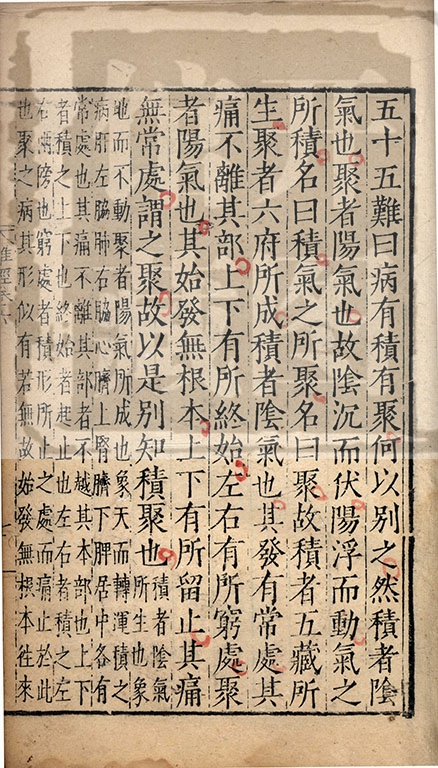 五十五難曰病有積有聚何以別之然積者隂
氣也聚者陽氣也故隂沉而伏陽浮而動氣之
所積名曰積氣之所聚名曰聚故積者五藏所
生聚者六府所成積者隂氣也其發有常處其
痛不離其部上下有所終始左右有所窮處聚
者陽氣也其始發無根本上下有所留止其痛
無常處謂之聚故以是別知積聚也
積者隂氣
所生也象
地而不動聚者陽氣所成也象天而轉運積之
病肝左脇肺右脇心臍上腎臍下脾居中各有
常處也其痛不離其部者不越其本部也上下
者積之上下也終始者起止也左右者積之左
右兩傍也窮處者積形所止之處而痛止於此
也聚之病其形似有若無故始發無根本往來